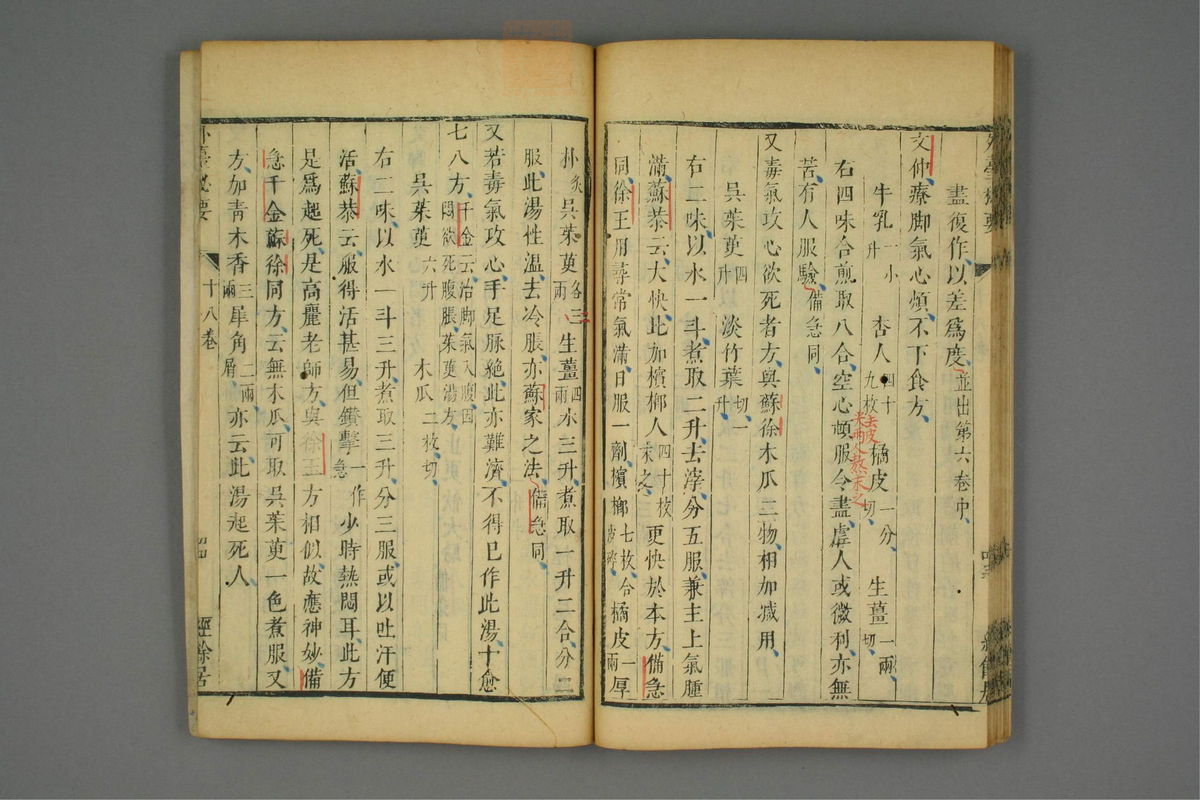 盡復作以差爲度並出第六卷中
文仲療脚氣心煩不下食方
牛乳一小升 杏人四十九枚 橘皮一分切 生薑一兩切
去皮尖兩人熬末之
右四味合煎取八合空心頓服令盡虛人或微利亦無
苦有人服驗備急同
又毒氣攻心欲死者方與蘇徐木瓜三物相加减用
吳茱萸四升 淡竹葉切一升
右二味以水一斗煮取二升去滓分五服兼主上氣腫
滿蘇恭云大快此加檳榔人四十枚末之更快於本方備急
同徐王用尋常氣滿日服一劑檳榔七枚合皮碎橘皮一兩厚
朴炙吳茱萸各三兩生薑四兩水三升煮取一升二合分二
服此湯性溫去冷脹亦蘇家之法備急同
又若毒氣攻心手足脉絶此亦難濟不得已作此湯十愈
七八方千金云治脚氣入腹困悶欲死腹脹茱萸湯方
吳茱萸六升 木瓜二枚切
右二味以水一斗三升煮取三升分三服或以吐汗便
活蘇恭云服得活甚易但鑽擊一作急少時熱悶耳此方
是爲起死是高麗老師方與徐王方相似故應神妙備
急千金蘇徐同方云無木瓜可取吳茱萸一色煮服又
方加青木香三兩犀角二兩屑亦云此湯起死人
十八卷
經餘居